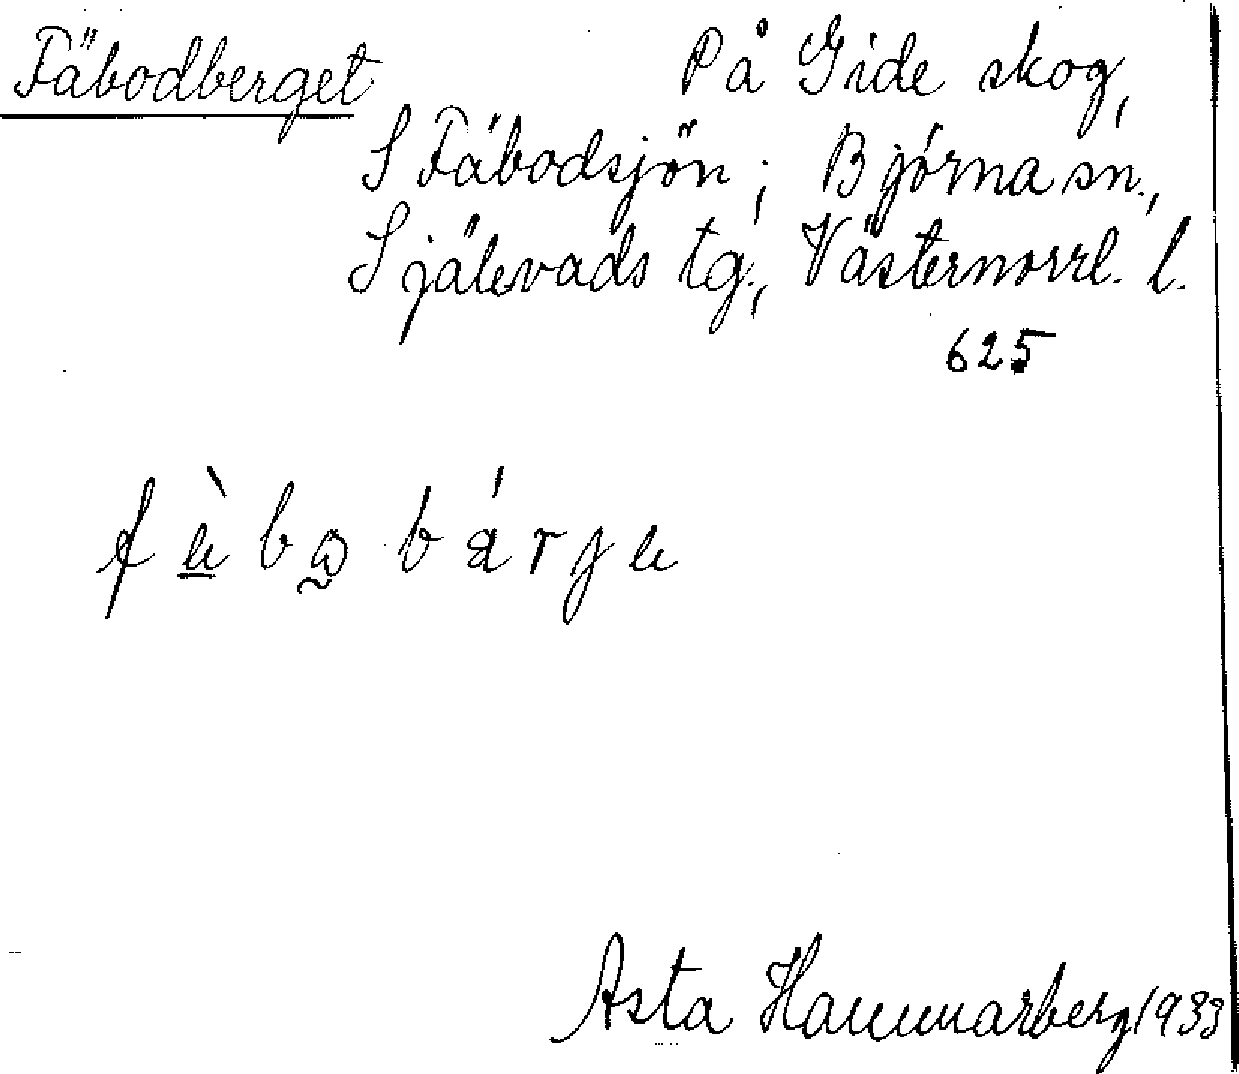 Fäbodberget På Gide skog,
S Fäbodsjön; Björna sn.,
Själevads tg., Västernorrl. l.
625
Asta Hammarberg 1933